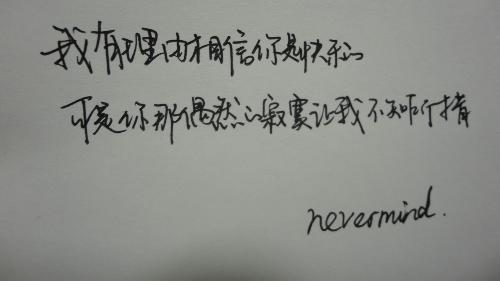 我有理由相信你是快乐的
可是你那偶然的寂寞让我不知咋个搞
nevermind.